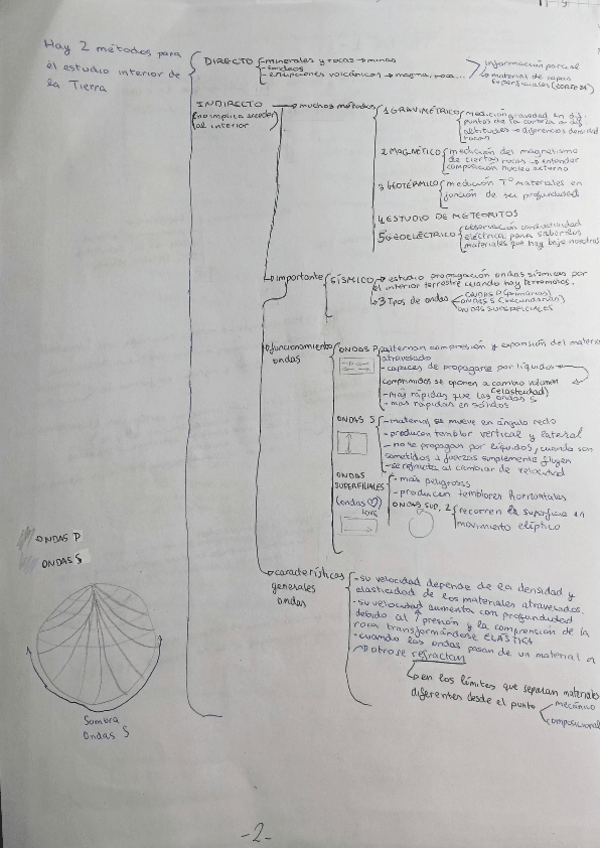 Hay 2 métodos para
el estudio interior de
la Tierra
DIRECTO
- minerales y rocas → minas
- sondeos
- erupciones volcánicas → magma, roca...
información parcial
material de capas
superficiales (corteza)
INDIRECTO
(no implica acceder
al interior
→ muchos métodos
1 GRAVIMÉTRICO
medición gravedad en dif.
puntos de la corteza a dif
altitudes → diferencias densidad
rocas
2 MAGNÉTICO
medición del magnetismo
de ciertas rocas → entender
composición núcleo externo
3 GEOTÉRMICO
medición Tº materiales en
función de su profundidad
4 ESTUDIO DE METEORITOS
5 GEOELÉCTRICO
observación conductividad
eléctrica para saber los
materiales que hay bajo nosotros
→ importante
SÍSMICO
→ estudio propagación ondas sísmicas por
el interior terrestre cuando hay terremotos.
→ 3 Tipos de ondas
ONDAS P (primarias)
ONDAS S (secundarias)
ONDAS SUPERFICIALES
funcionamiento
ondas
ONDAS P
- alternan compresión y expansión del material
atravesado
- capaces de propagarse por líquidos
comprimidos se oponen a cambio volumen
(elasticidad)
- más rápidas que las ondas S
- más rápidas en sólidos
ONDAS S
- material se mueve en ángulo recto
- producen temblor vertical y lateral
- no se propagan por líquidos, cuando son
sometidos a fuerzas simplemente fluyen
- se refracta al cambiar de velocidad
ONDAS
SUPERFILIALES
(ondas
love
- más peligrosas
- producen temblores horizontales
ONDAS SUP. 2
recorren la superficie en
movimiento elíptico
→ características
generales
ondas
- su velocidad depende de la densidad y
elasticidad de los materiales atravesados.
- su velocidad aumenta con profundidad
debido al ↑ presión y la compresión de la
roca transformándose ELÁSTICA
- cuando las ondas pasan de un material a
otro se refractan
→ en los límites que separan materiales
diferentes desde el punto
mecánico
composicional
ONDAS P
ONDAS S
Sombra
Ondas S
-2-